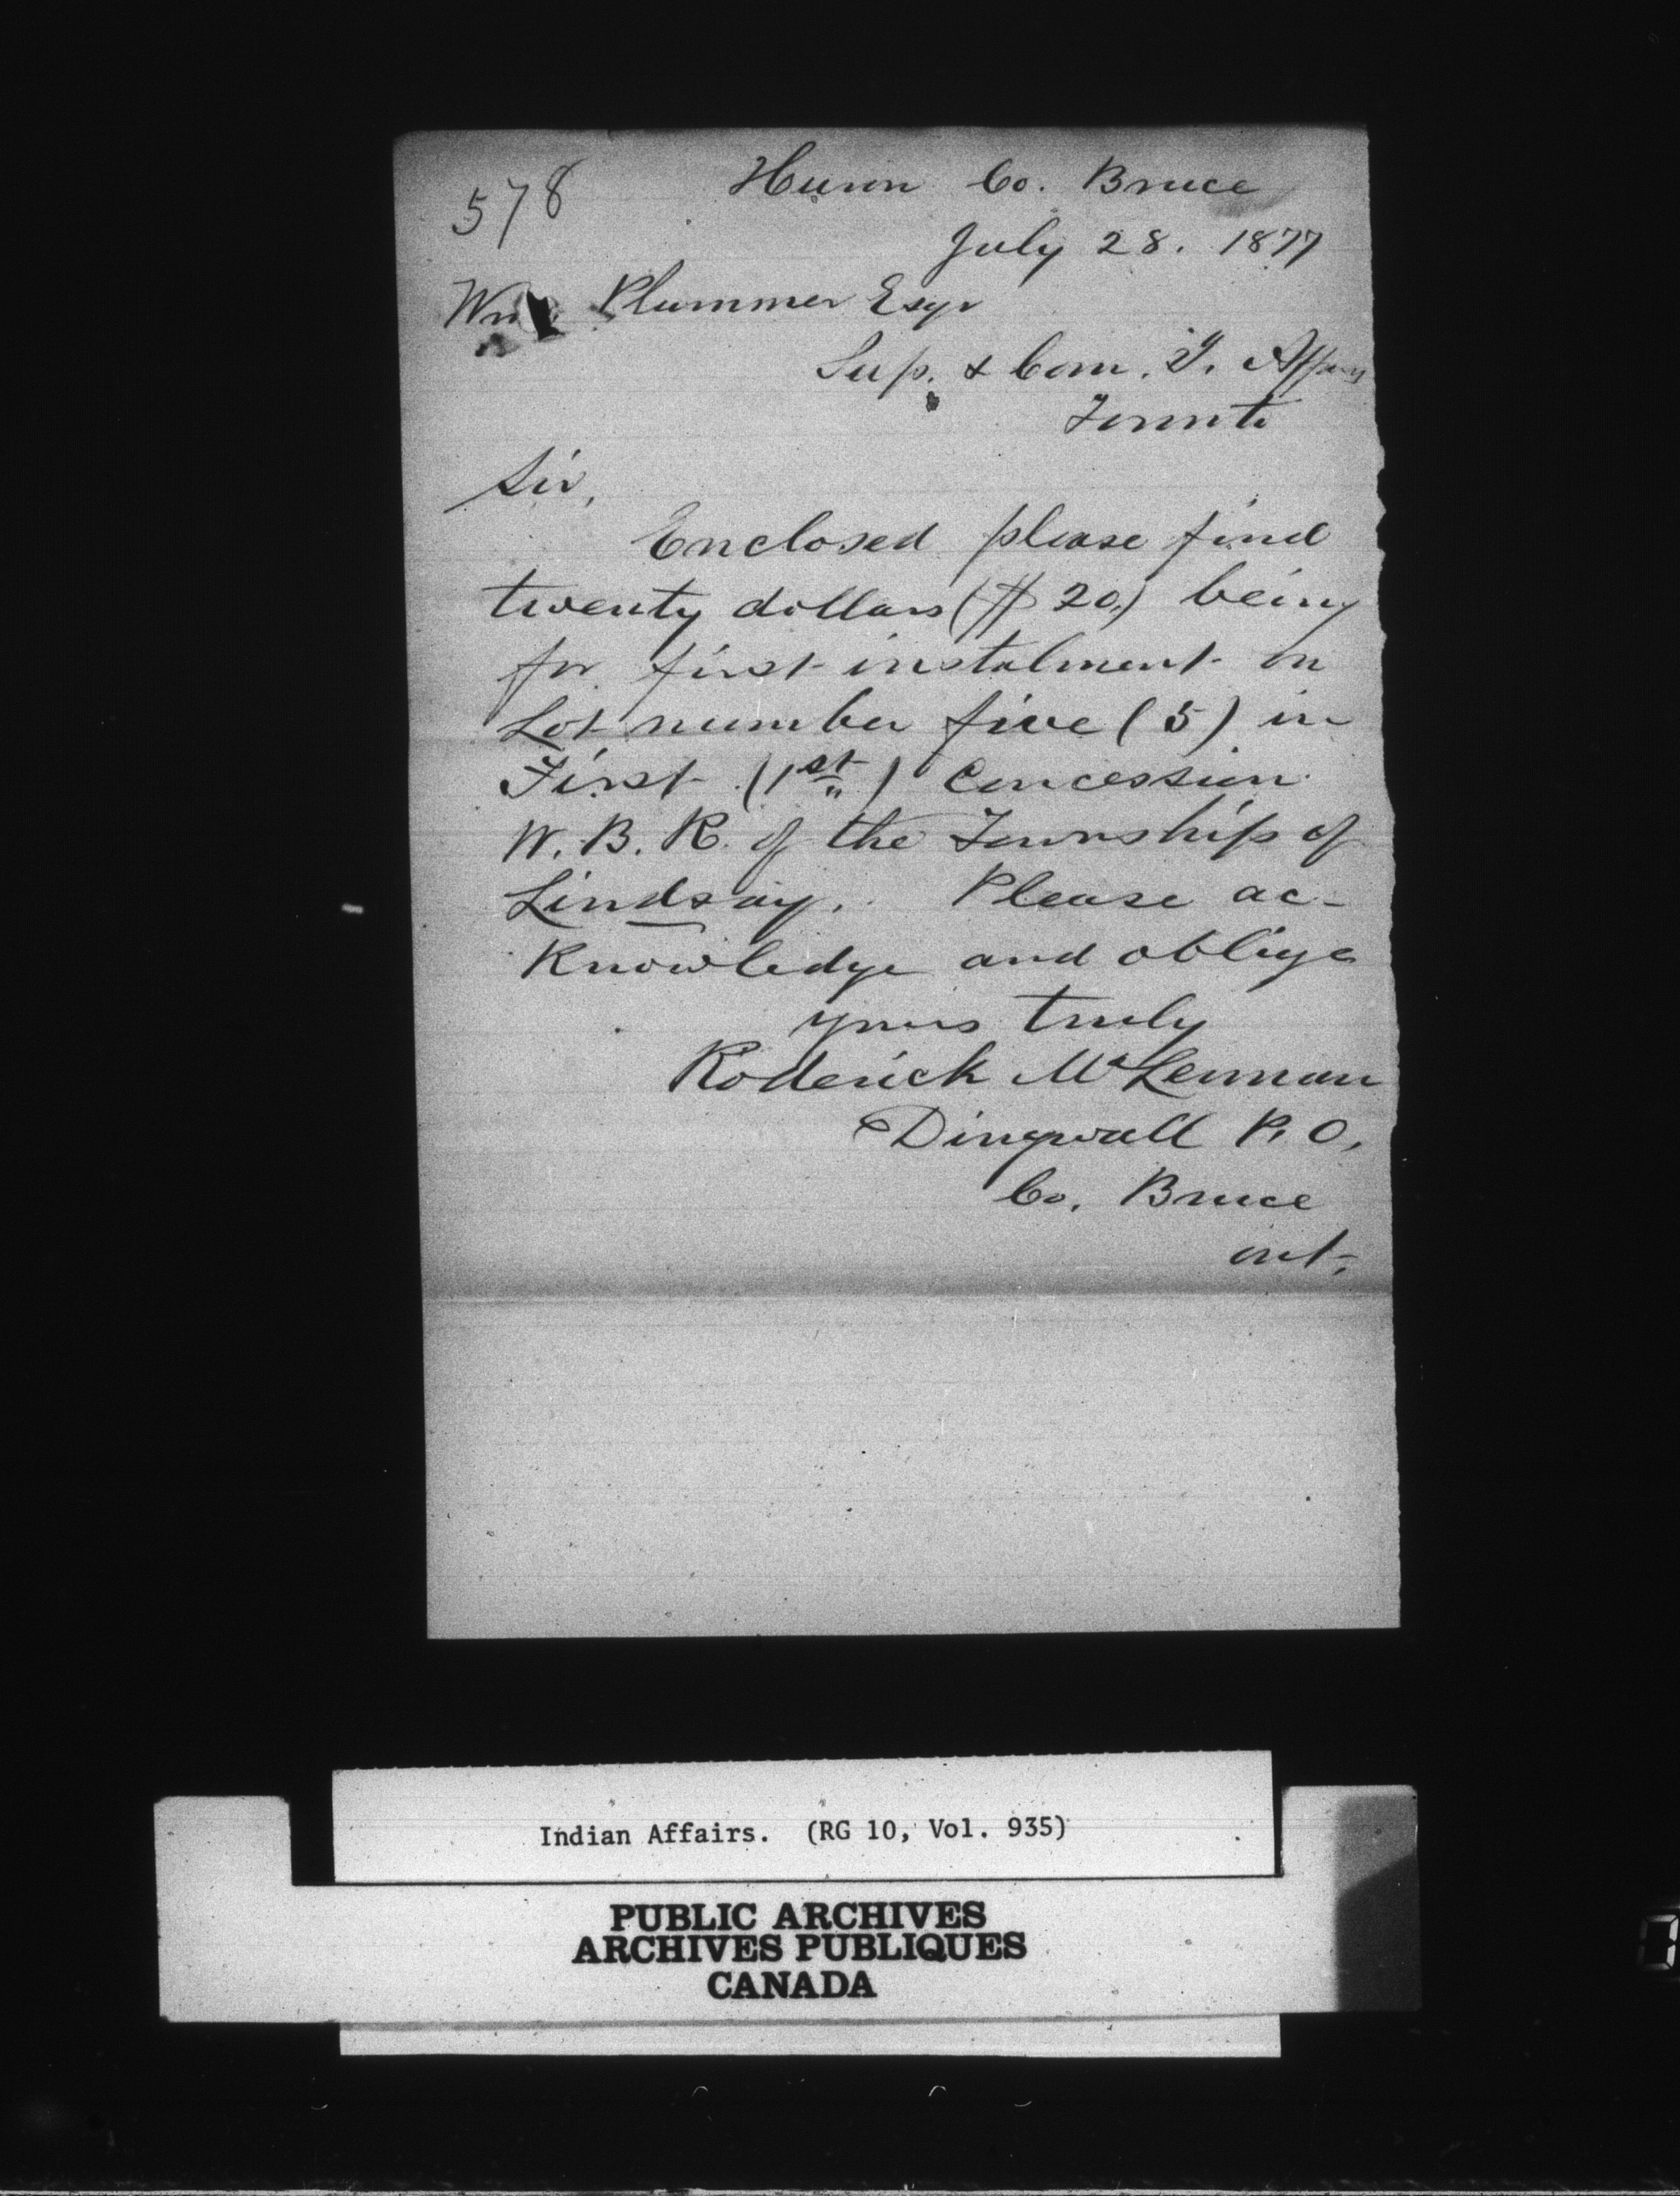 578
Huron Co. Bruce
July 28. 1877
Wm. Plummer Esqr
Sup. & Com. I. Affairs
Toronto
Sir,
Enclosed please find
twenty dollars ($20.) being
for first instalment on
Lot number five (5) in
First (1st) Concession
W. B. R. of the Township of
Lindsay. Please ac-
knowledge and oblige
yours truly
Roderick McLennan
Dingwall P. O.
Co. Bruce
Ont.
Indian Affairs. (RG 10, Vol. 935)
PUBLIC ARCHIVES
ARCHIVES PUBLIQUES
CANADA